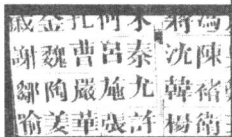 馮陳褚衛
蔣沈韓楊
朱秦尤許
何呂施張
孔曹嚴華
金魏陶姜
戚謝鄒喻